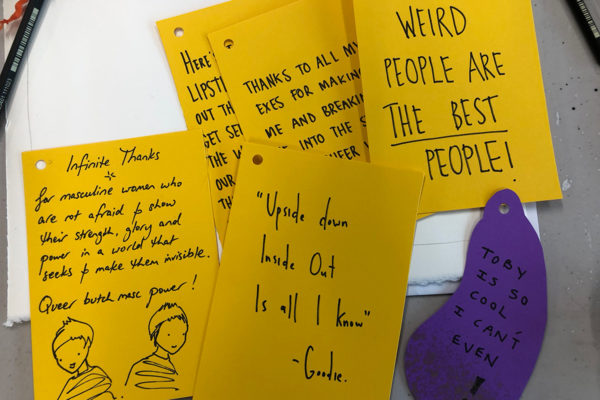 HERE'
LIPSTI
OUT TH
GET SE
THE W
OUR
THANKS TO ALL MY
EXES FOR MAKING
ME AND BREAKING
INTO THE S
WEIRD
PEOPLE ARE
THE BEST
PEOPLE!
Infinite Thanks
for masculine women who
are not afraid to show
their strength, glory and
power in a world that
seeks to make them invisible.
Queer butch masc power!
"Upside down
Inside Out
Is all I know"
-Goodie.
TOBY
IS SO
COOL
I CAN'T
EVEN
!